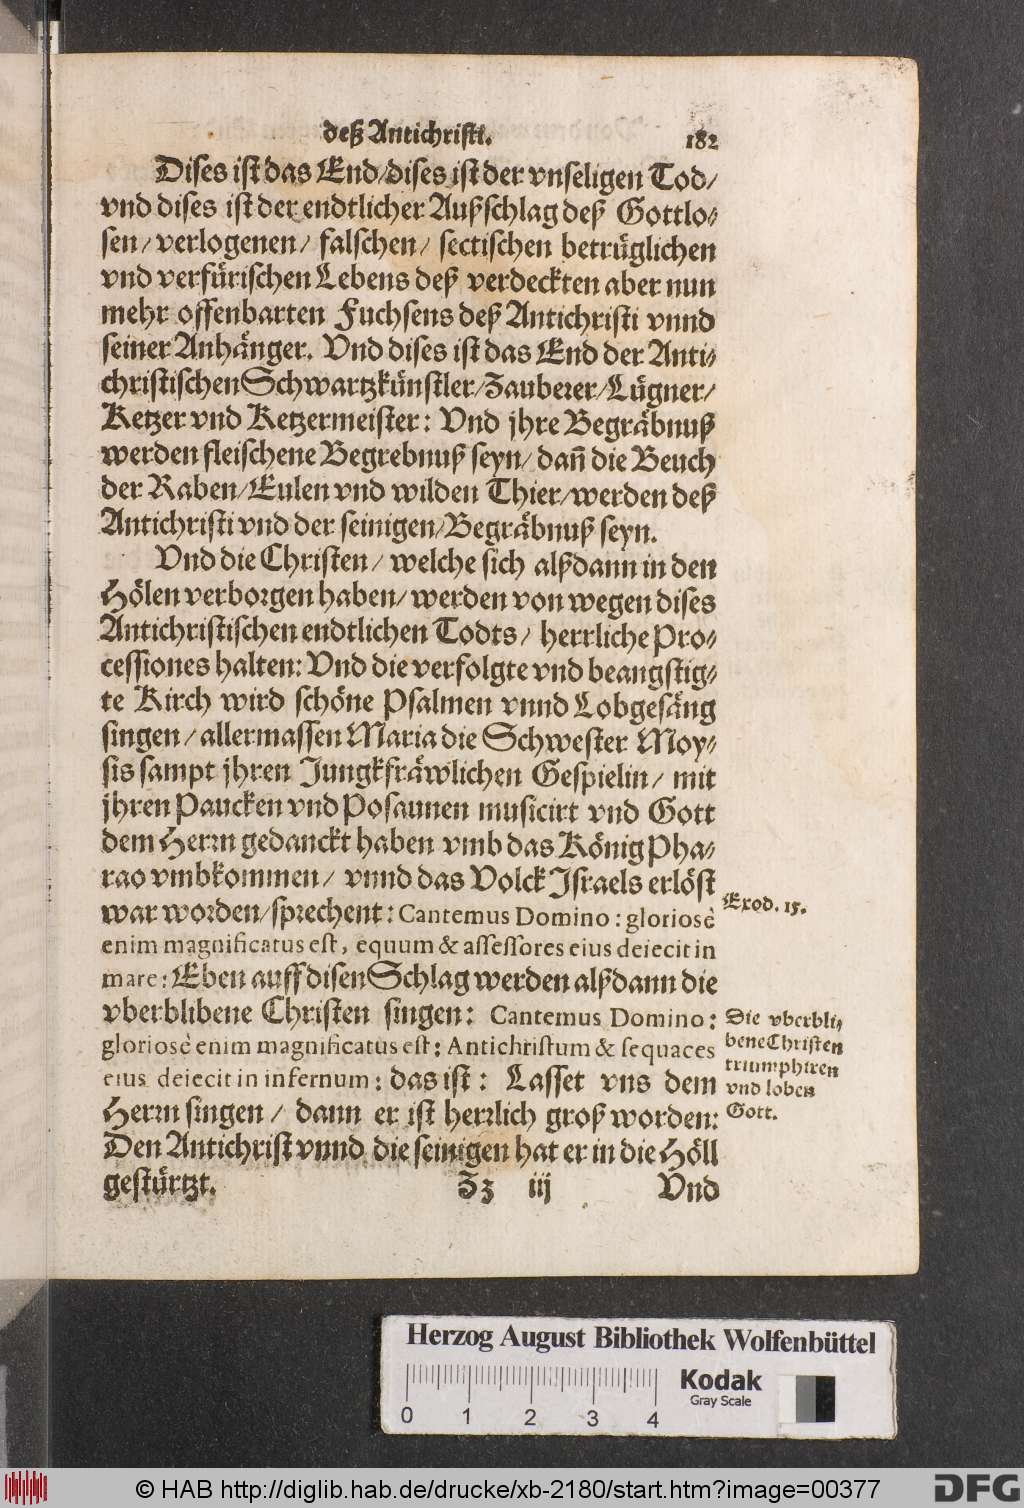 deß Antichristi. 182
Dises ist das End/dises ist der vnseligen Tod/
vnd dises ist der endtlicher Außschlag deß Gottlo-
sen/ verlogenen/ falschen/ sectischen betrüglichen
vnd verfürischen Lebens deß verdeckten aber nun
mehr offenbarten Fuchsens deß Antichristi vnnd
seiner Anhänger. Vnd dises ist das End der Anti-
christischen Schwartzkünstler/Zauberer/Lügner/
Ketzer vnd Ketzermeister: Vnd jhre Begräbnuß
werden fleischene Begrebnuß seyn/ dañ die Beuch
der Raben/Eulen vnd wilden Thier/werden deß
Antichristi vnd der seinigen/Begräbnuß seyn.
Vnd die Christen/ welche sich alßdann in den
Hölen verborgen haben/ werden von wegen dises
Antichristischen endtlichen Todts/ herrliche Pro-
cessiones halten: Vnd die verfolgte vnd beangstig-
te Kirch wird schöne Psalmen vnnd Lobgesäng
singen/ allermassen Maria die Schwester Moy-
sis sampt jhren Jungkfräwlichen Gespielin/ mit
jhren Paucken vnd Posaunen musicirt vnd Gott
dem Herrn gedanckt haben vmb das König Pha-
rao vmbkommen/ vnnd das Volck Israels erlöst
war worden/sprechent: Cantemus Domino: gloriosè
enim magnificatus est, equum & assessores eius deiecit in
mare: Eben auff disen Schlag werden alßdann die
vberblibene Christen singen: Cantemus Domino:
gloriosè enim magnificatus est: Antichristum & sequaces
eius deiecit in infernum: das ist: Lasset vns dem
Herrn singen/ dann er ist herrlich groß worden:
Den Antichrist vnnd die seinigen hat er in die Höll
gestürtzt. Zz iij Vnd
Exod. 15.
Die vberbli-
bene Christen
triumphiren
vnd loben
Gott.
Herzog August Bibliothek Wolfenbüttel
Kodak
Gray Scale
0 1 2 3 4
© HAB http://diglib.hab.de/drucke/xb-2180/start.htm?image=00377
DFG